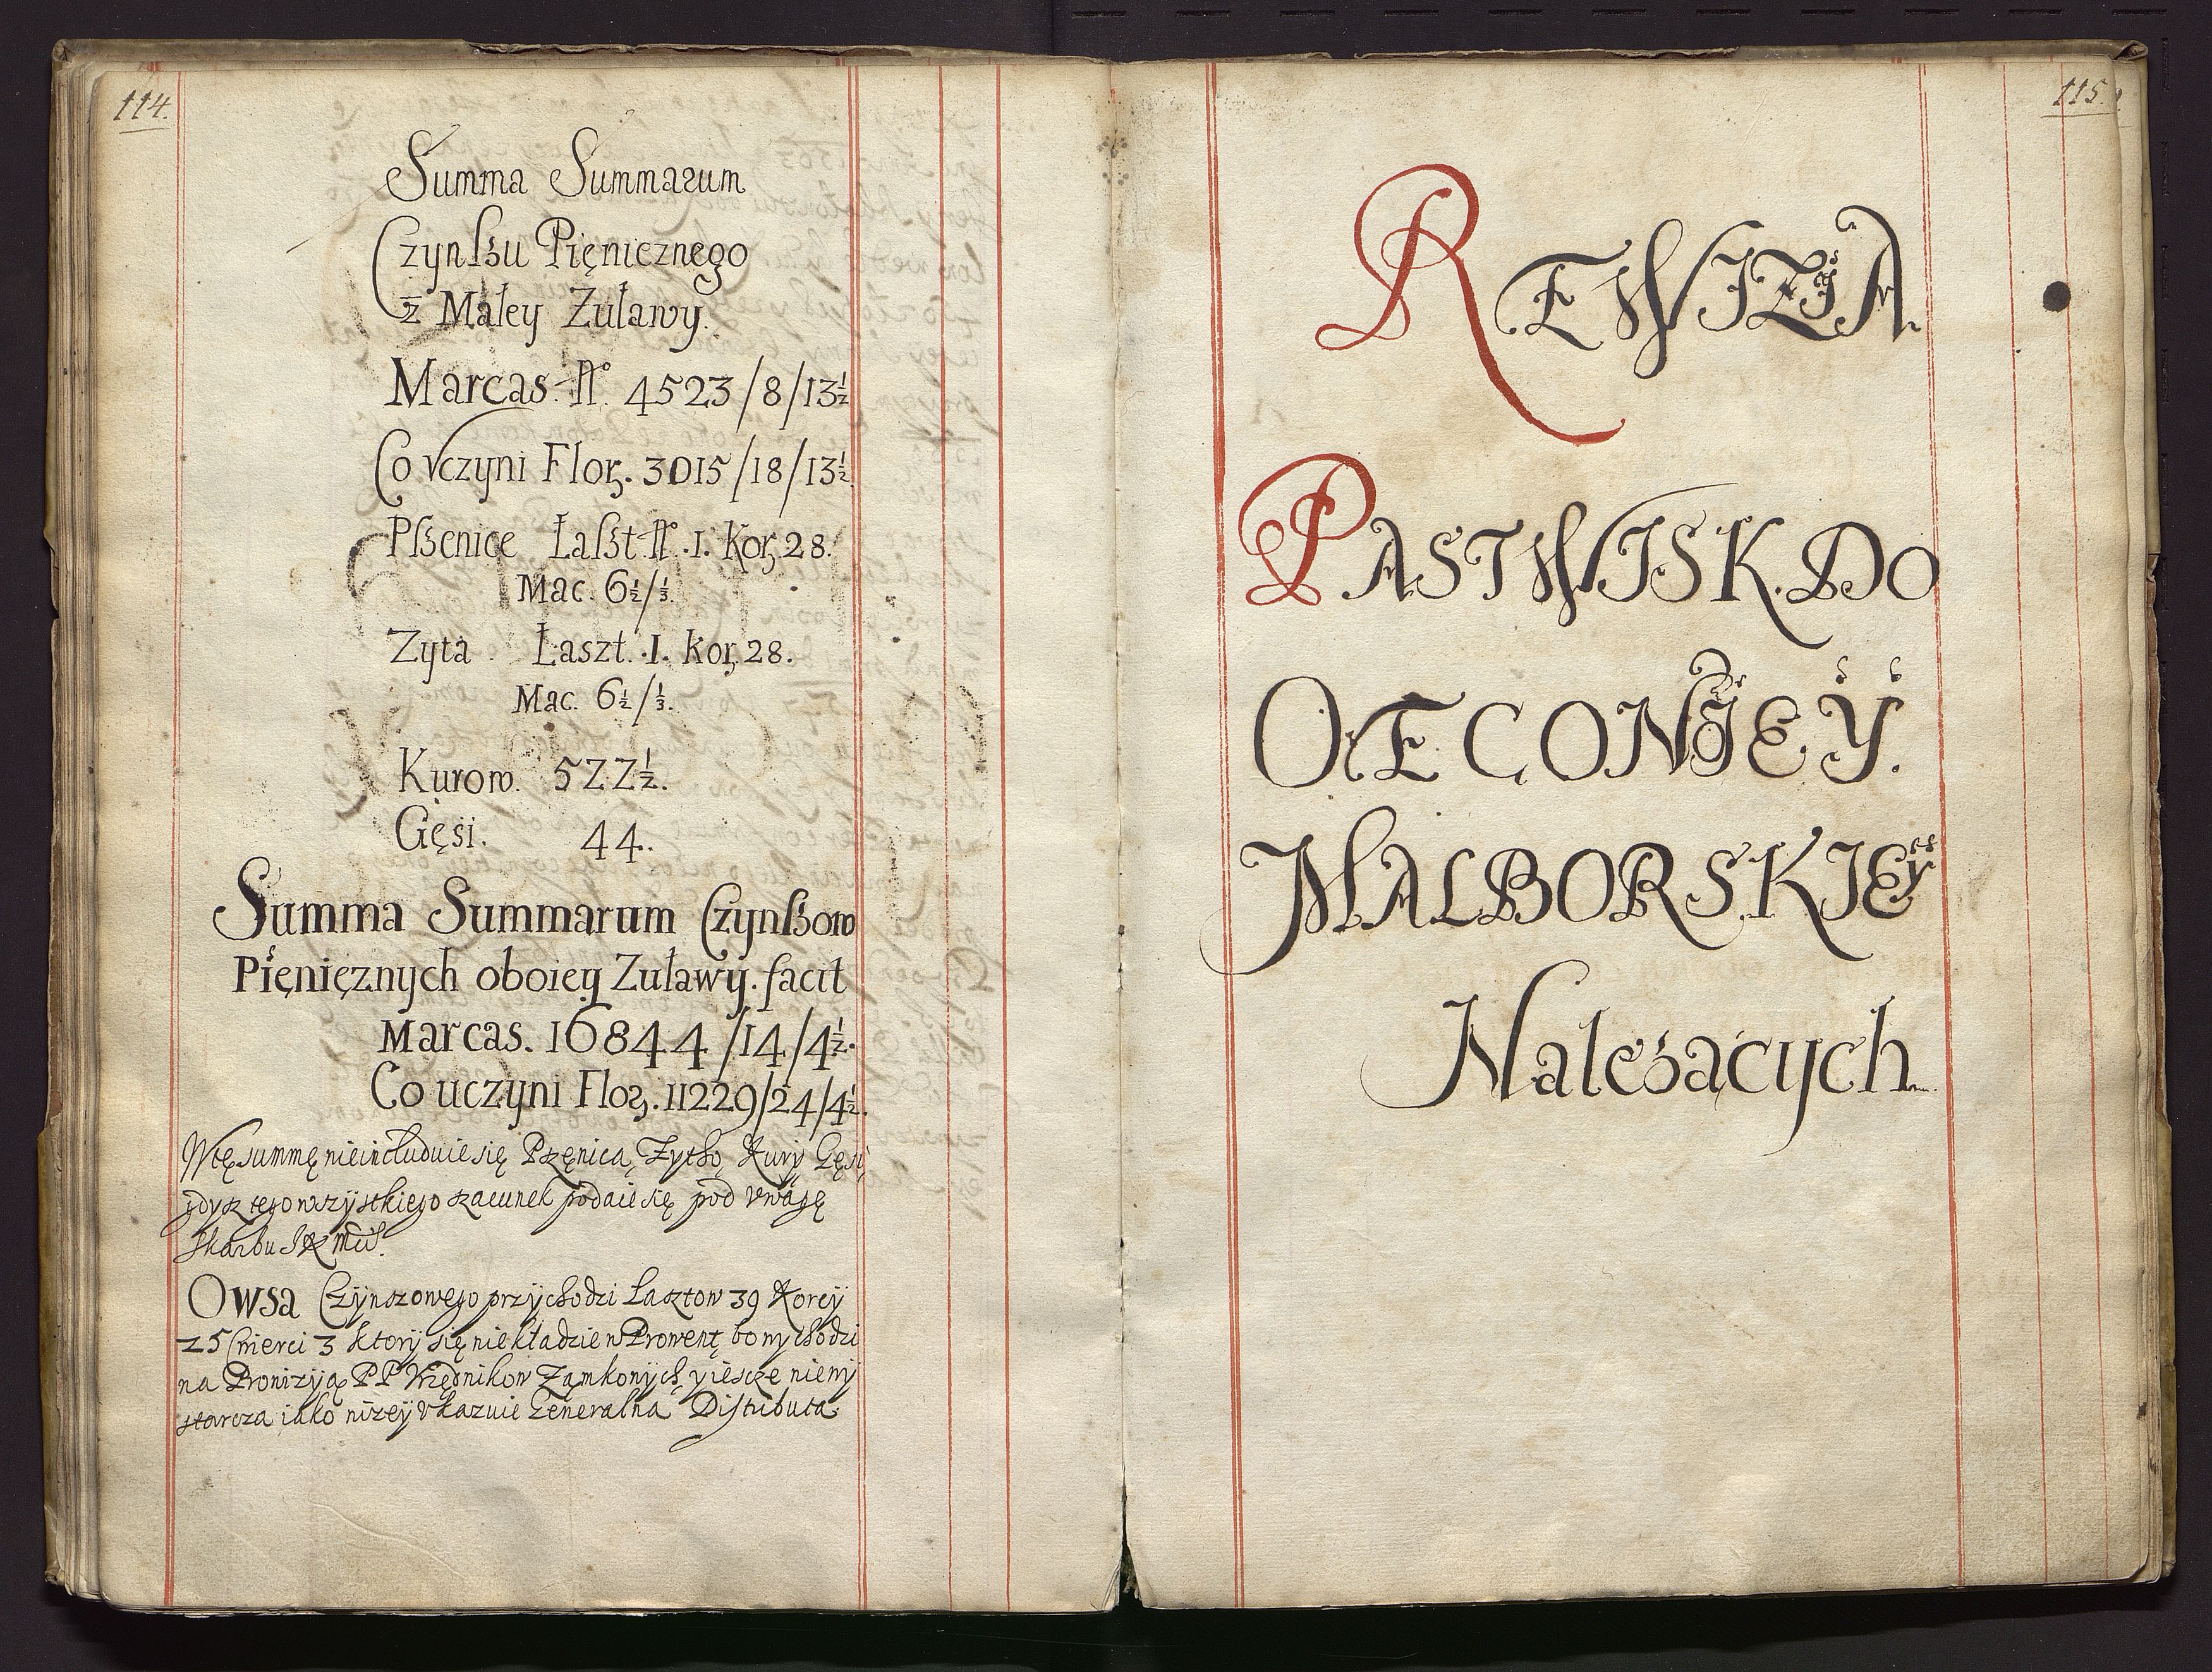 114.
Summa Summarum
Czynßu Pięnieznego
z Małey Zuławy.
Marcas. Nº. 4523/8/13½
Co vczyni Flor. 3015/18/13½.
Pßenice Łaßt Nº. 1. Kor. 28.
Mac. 6½/⅓.
Zyta Łaszt. 1. Kor. 28.
Mac. 6½/⅓.
Kurow. 522½.
Gęsi. 44.
Summa Summarum Czynßow
Pięnięznych oboiey Zuławy. facit
Marcas. 16844/14/4½.
Co uczyni Flor. 11229/24/4½.
Wtę summę nieincluduie się Pszęnica, Zytho, Kury Gęsi,
gdysz tego wszystkiego szacunek podaie się pod vwagę
Skarbu JK Mci.
Owsa Czynszowego przychodzi Łasztow 39 Korcy
25 Cwierci 3 ktory się niekładzie w Prowent, bo wychodzi
na Prowizyą PP Vrzędnikow Zamkowych, y ieszcze niewy
starcza iako nizey vkazuie Generalna Distributa.
115.
REWIZYA
PASTWISK. DO
OECONJEY.
MALBORSKIEY
Nalezących